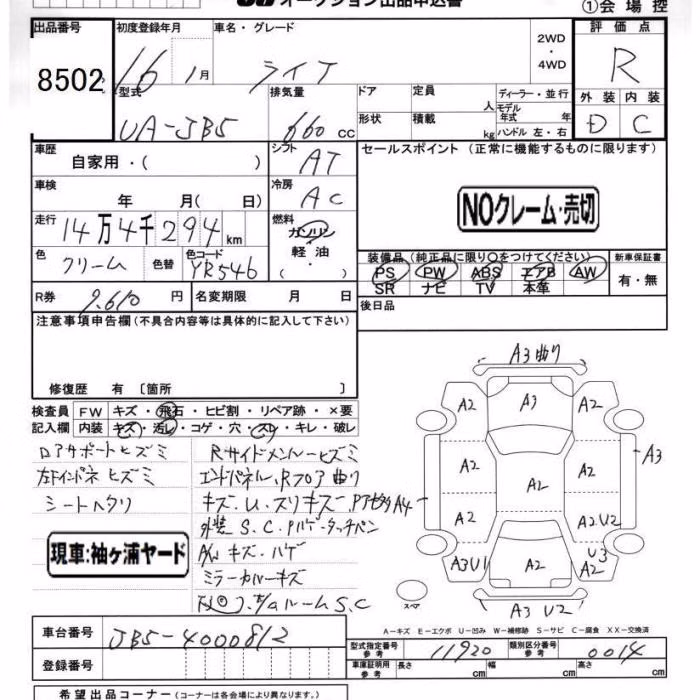 オークション出品申込書
①会場控
出品番号
8502
初度登録年月
16 1月
車名・グレード
ライフ
2WD
・
4WD
評価点
R
型式
UA-JB5
排気量
660 cc
ドア
定員
人
ディーラー・並行
モデル年式 年
形状
積載
kg
ハンドル 左・右
外装 内装
D C
車歴
自家用・( )
シフト
AT
セールスポイント (正常に機能するものに限ります)
NOクレーム・売切
車検
年 月( 日)
冷房
AC
走行
14万4千294 km
燃料
ガソリン
軽油
・
( )
色
クリーム
色替
色コード
YR546
装備品(純正品に限り○をつけてください)
PS PW ABS エアB AW
SR ナビ TV 本革
新車保証書
有・無
R券
9,610 円
名変期限 月 日
後日品
注意事項申告欄(不具合内容等は具体的に記入して下さい)
修復歴 有 〔箇所 〕
検査員
記入欄
FW キズ・飛石・ヒビ割・リペア跡・×要
内装 キズ・汚レ・コゲ・穴・スレ・キレ・破レ
ロアサポートヒズミ
左Fインパネ ヒズミ
シートヘタリ
現車:袖ヶ浦ヤード
Rサイドメンバーヒズミ
エンドパネル、Rフロア曲り
キズ、U、スリキズ
外装 S.C.Pハゲ・タッチペン
A/W キズ・ハゲ
ミラーカバーキズ
ルーム S.C
A3曲り
A2
A3
A2
A2
A2
A2
A3
A4
A2
A2U2
A3U1
A2
U3
A2
スペア
A3 U2
A-キズ E-エクボ U-凹み W-補修跡 S-サビ C-腐食 XX-交換済
車台番号
JB5-4000812
登録番号
型式指定番号
参考
11920
類別区分番号
参考
0014
車庫証明用
参考
長さ cm 幅 cm 高さ cm
希望出品コーナー (コーナーは各会場により異なります。)